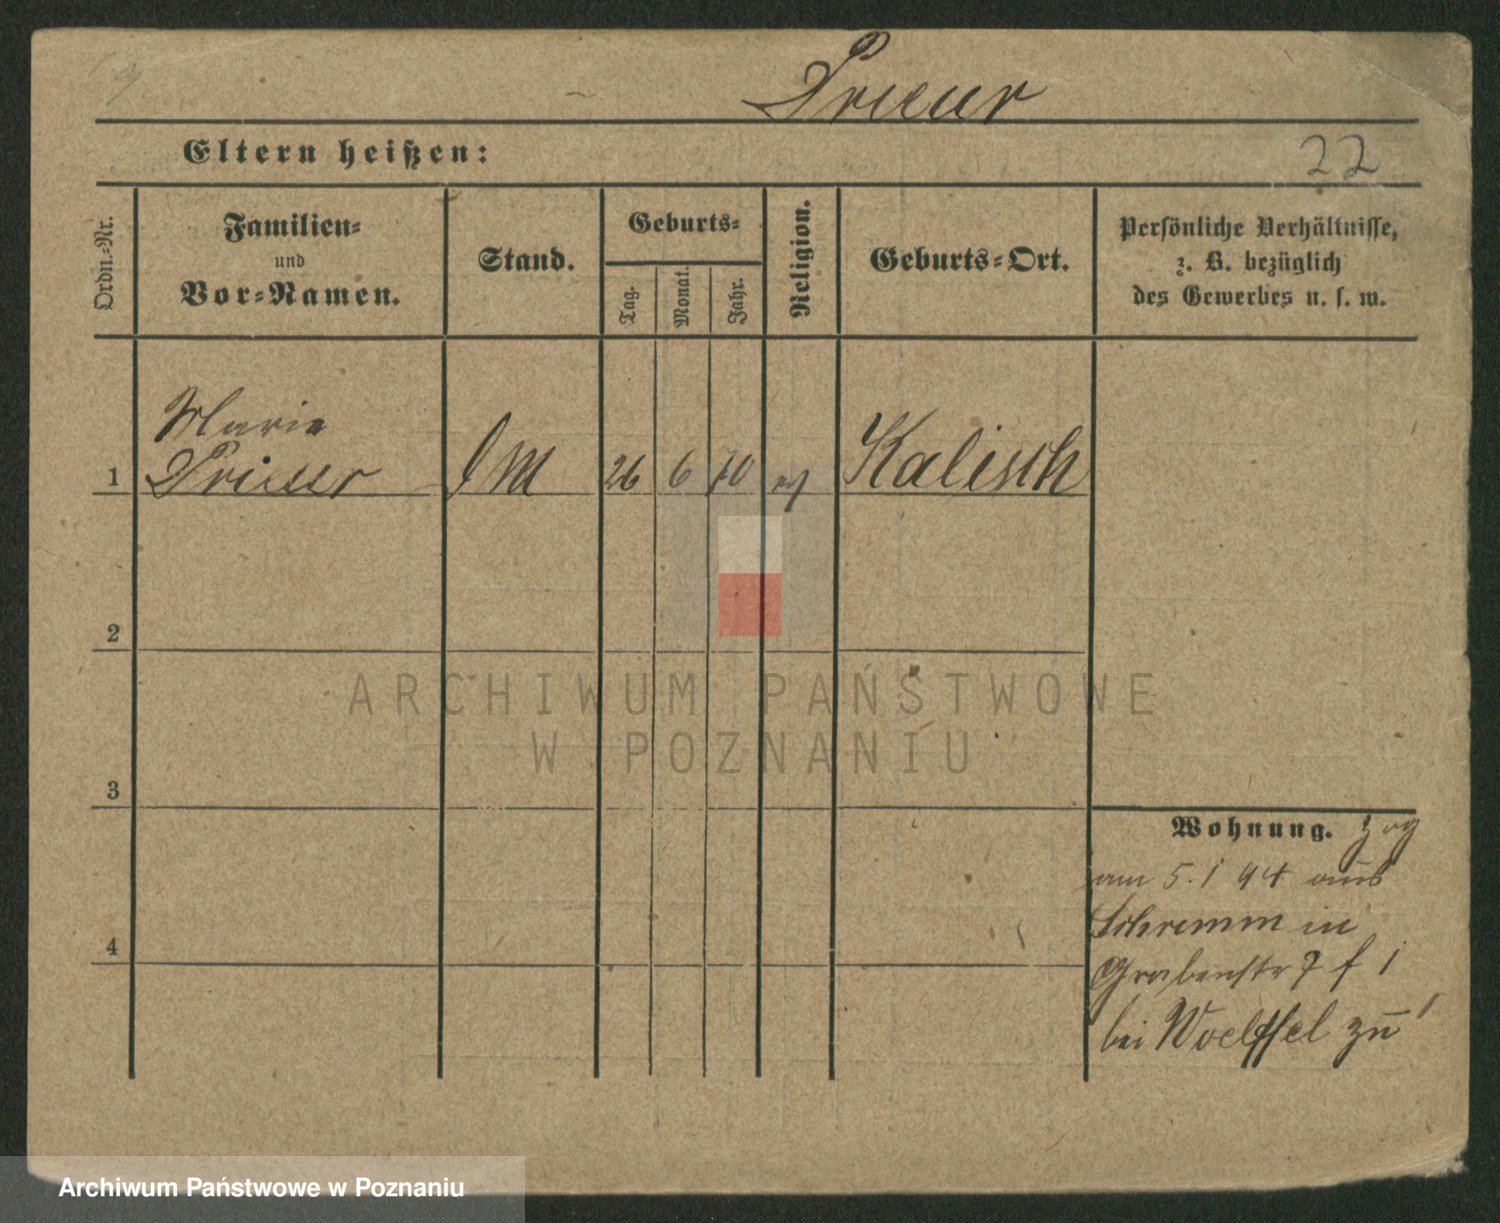 Prieur
Eltern heißen:
22
Ordn.-Nr.
Familien-
und
Vor-Namen.
Stand.
Geburts-
Tag.
Monat.
Jahr.
Religion.
Geburts-Ort.
Persönliche Verhältnisse,
z. B. bezüglich
des Gewerbes u. s. w.
Marie
1 Prieur 26 6 70 Kalisch
2
3
4
ARCHIWUM PAŃSTWOWE
W POZNANIU
Wohnung. zog
am 5. 1 94 aus
Schrimm in
Grabenstr 7 f 1
bei Woelffel zu
Archiwum Państwowe w Poznaniu